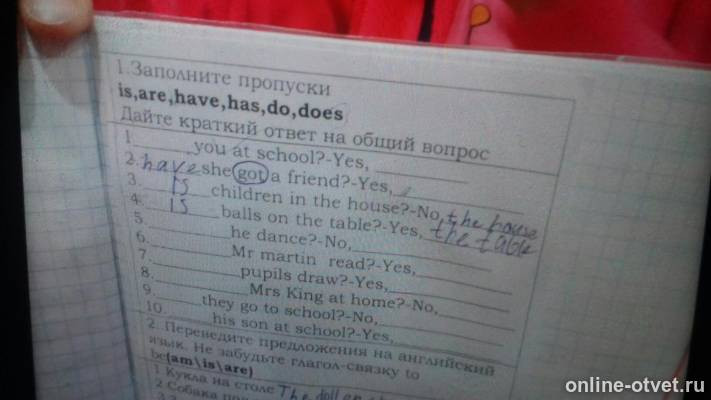 1.Заполните пропуски
is,are,have,has,do,does
Дайте краткий ответ на общий вопрос
1 you at school?-Yes,
2. have she got a friend?-Yes,
3. is children in the house?-No, the house
4. is balls on the table?-Yes, the table
5. he dance?-No,
6. Mr martin read?-Yes,
7. pupils draw?-Yes,
8. Mrs King at home?-No,
9. they go to school?-No,
10. his son at school?-Yes,
2. Переведите предложения на английский
язык. Не забудьте глагол-связку to
be(am\is\are)
1 Кукла на столе The doll on
2 Собака
online-otvet.ru